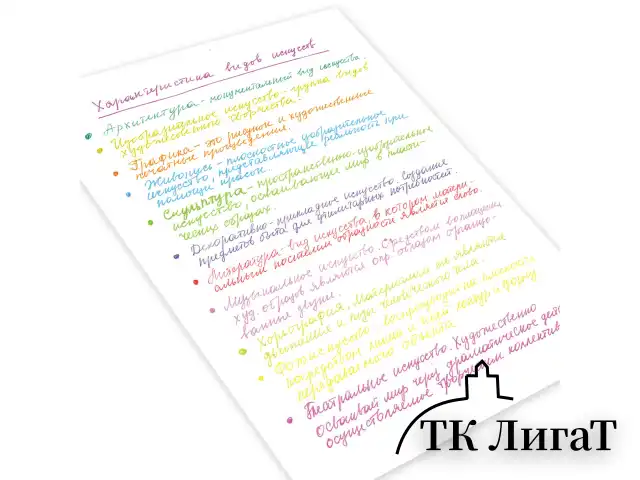 Характеристика видов искусств
Архитектура - монументальный вид искусства.
Изобразительное искусство - группа видов
художественного творчества.
Графика - это рисунок и художественные
печатные произведения.
Живопись - плоскостное изобразительное
искусство, представляющее реальность при
помощи красок.
Скульптура - пространственно-изобразительное
искусство, осваивающее мир в пласти-
ческих образах.
Декоративно-прикладное искусство. Создание
предметов быта для утилитарных потребностей.
Литература - вид искусства, в котором матери-
альным носителем образности является слово.
Музыкальное искусство. Средством воплощения
худ. образов являются опр. образом организо-
ванные звуки.
Хореография. Материалом являются
движения и позы человеческого тела.
Фотоискусство воспроизводит на плоскости
посредством линий и теней контур и форму
передаваемого объекта
Театральное искусство. Художественно
осваивает мир через драматическое дейст
осуществляемое творческим коллектив
ТК ЛигаТ